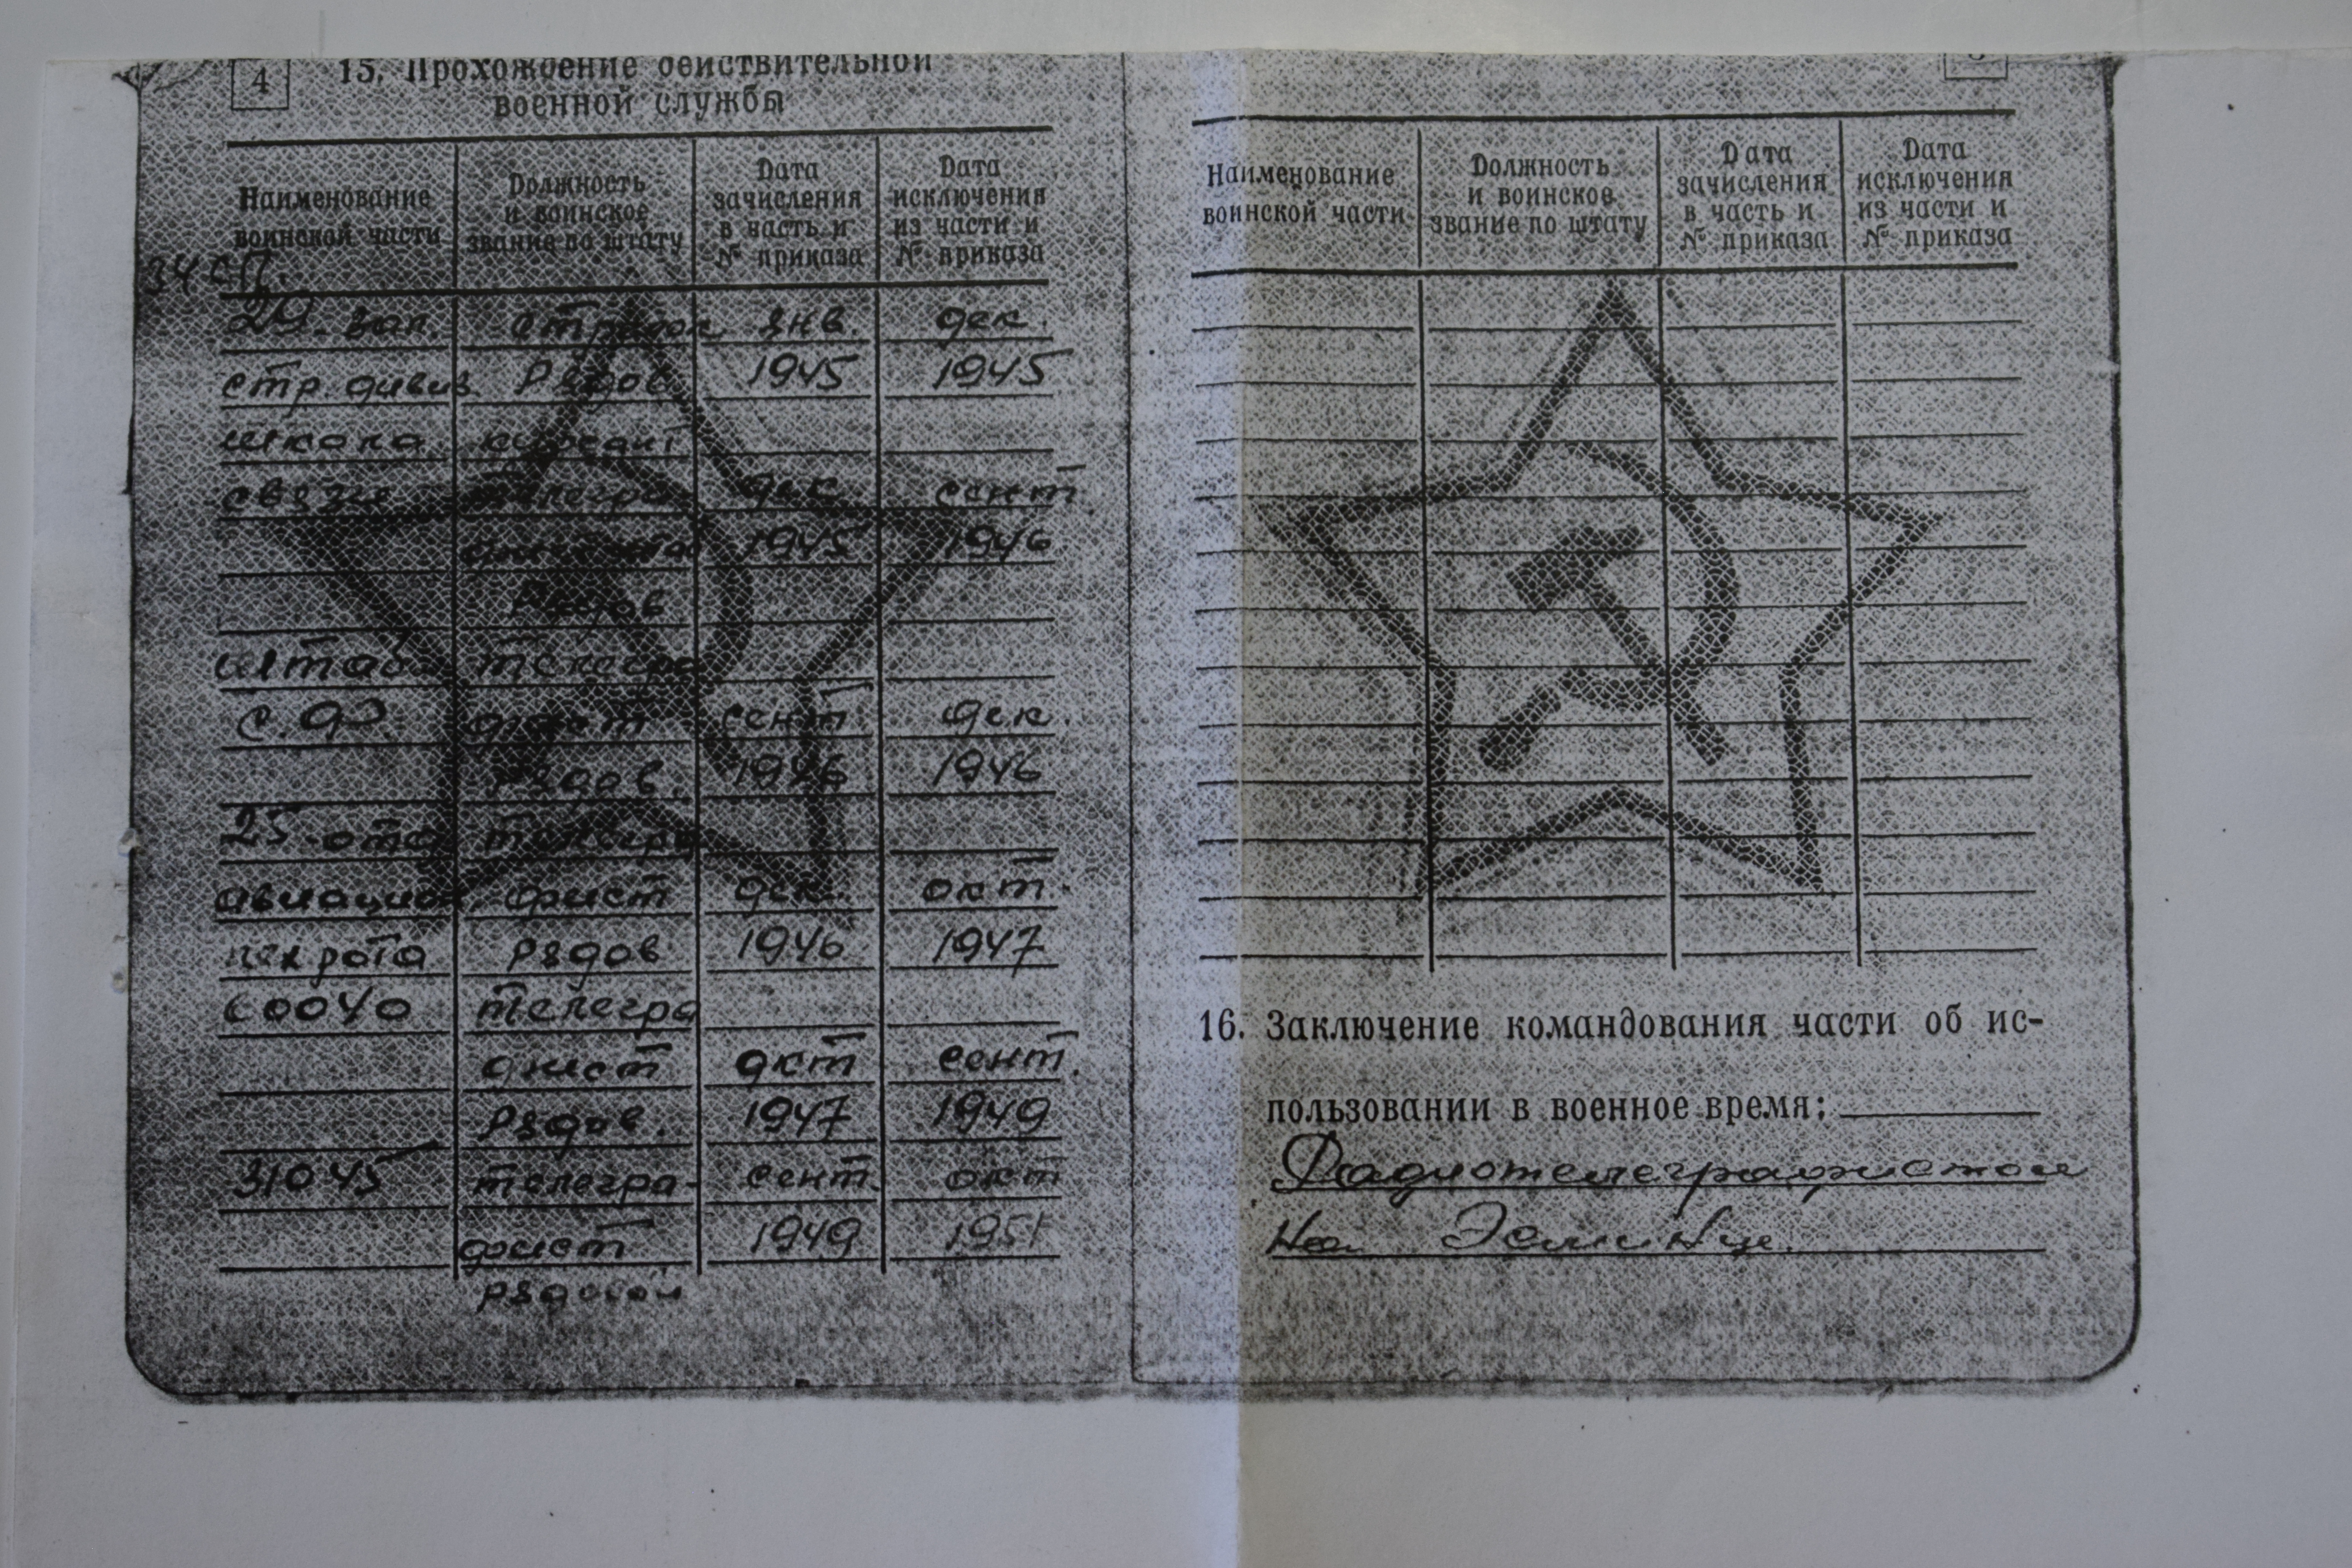 4
15. Прохождение действительной
военной службы
Наименование
воинской части
Должность
и воинское
звание по штату
Дата
зачисления
в часть и
№ приказа
Дата
исключения
из части и
№ приказа
34 сп.
29. зап. стрелок янв. дек.
стр. дивиз Рядов. 1945 1945
школа курсант
связи телегра дек сент
1945 1946
Рядов
штаб телегра
С.Ф. фист сент дек.
Рядов. 1946 1946
25-отд телегра
авиацион. фист дек. окт.
рота Рядов 1946 1947
60040 телегра
фист окт сент.
Рядов. 1947 1949
31045 телегра- сент. окт
фист 1949 1951
рядовой
Наименование
воинской части
Должность
и воинское
звание по штату
Дата
зачисления
в часть и
№ приказа
Дата
исключения
из части и
№ приказа
16. Заключение командования части об ис-
пользовании в военное время:
Радиотелеграфистом
на Эсминце.